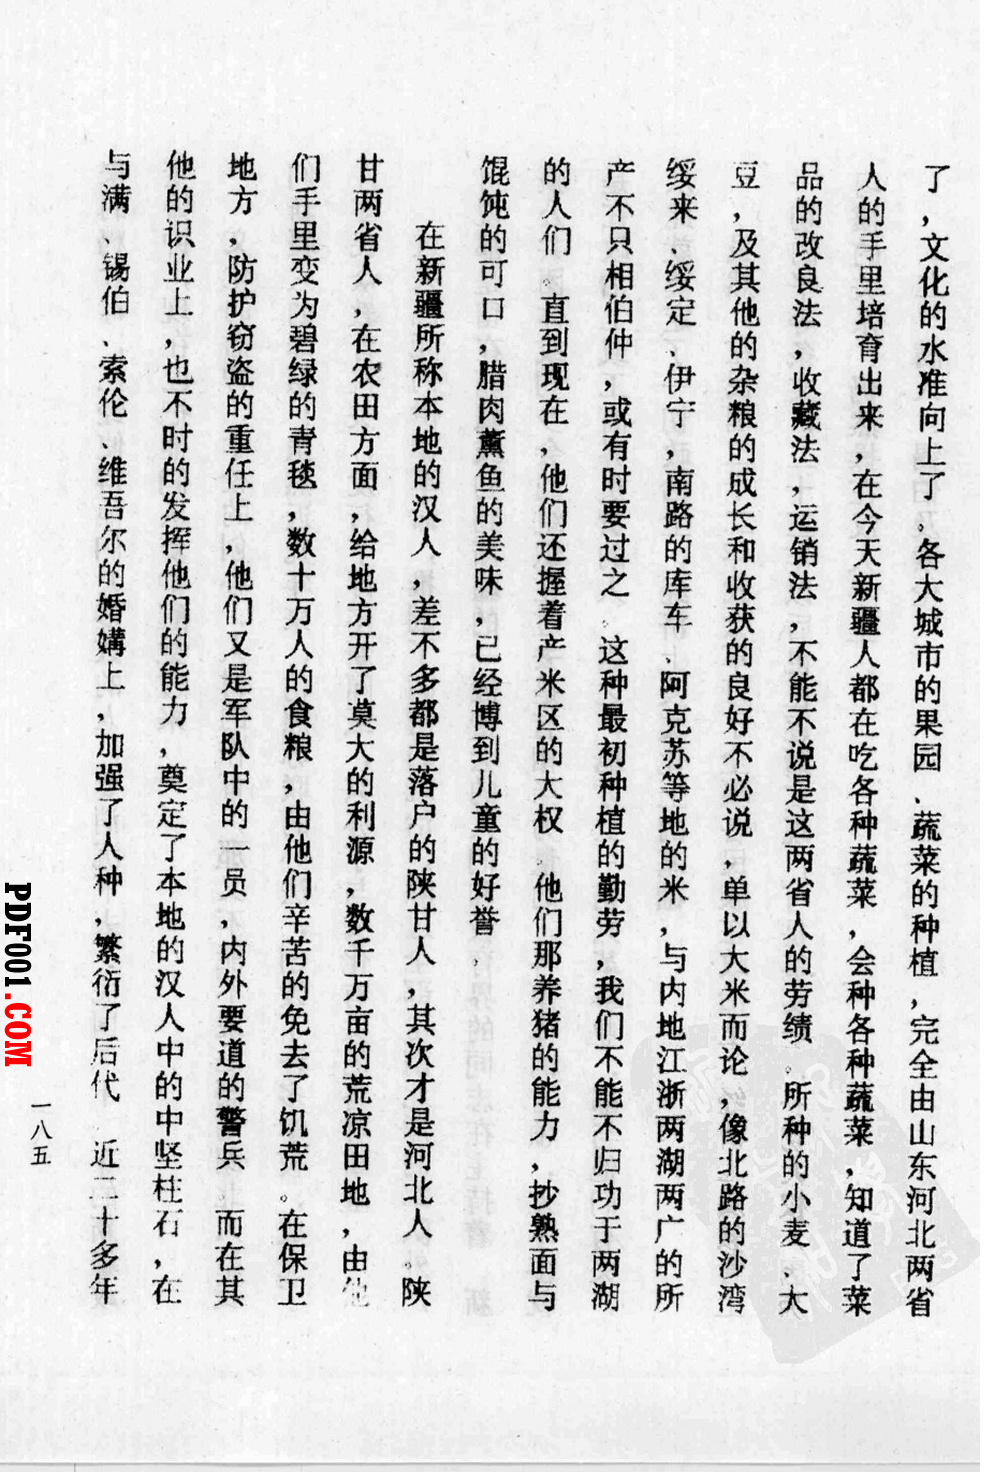 了，文化的水准向上了。各大城市的果园、蔬菜的种植，完全由山东河北两省
人的手里培育出来，在今天新疆人都在吃各种蔬菜，会种各种蔬菜，知道了菜
品的改良法，收藏法，运销法，不能不说是这两省人的劳绩。所种的小麦、大
豆，及其他的杂粮的成长和收获的良好不必说，单以大米而论，像北路的沙湾
绥来、绥定、伊宁，南路的库车、阿克苏等地的米，与内地江浙两湖两广的所
产不只相伯仲，或有时要过之。这种最初种植的勤劳，我们不能不归功于两湖
的人们。直到现在，他们还握着产米区的大权。他们那养猪的能力，抄熟面与
馄饨的可口，腊肉薰鱼的美味，已经博到儿童的好誉。
在新疆所称本地的汉人，差不多都是落户的陕甘人，其次才是河北人。陕
甘两省人，在农田方面，给地方开了莫大的利源，数千万亩的荒凉田地，由他
们手里变为碧绿的青毯，数十万人的食粮，由他们辛苦的免去了饥荒。在保卫
地方，防护窃盗的重任上，他们又是军队中的一员，内外要道的警兵。而在其
他的识业上，也不时的发挥他们的能力，奠定了本地的汉人中的中坚柱石，在
与满、锡伯、索伦、维吾尔的婚媾上，加强了人种，繁衍了后代。近二十多年
一八五
PDF001.COM